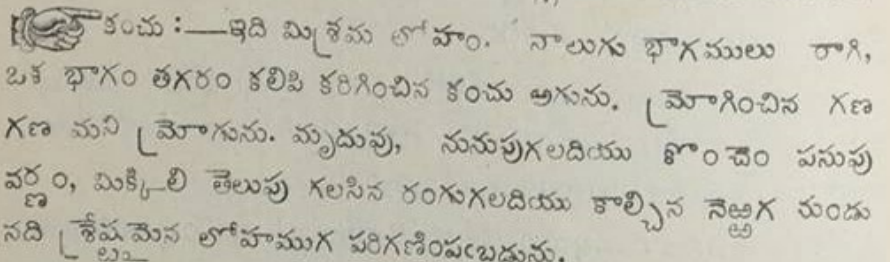 కంచు :—ఇది మిశ్రమ లోహం. నాలుగు భాగములు రాగి,
ఒక భాగం తగరం కలిపి కరిగించిన కంచు అగును. మ్రోగించిన గణ
గణ మని మ్రోగును. మృదువు, నునుపుగలదియు కొంచెం పసుపు
వర్ణం, మిక్కిలి తెలుపు గలసిన రంగుగలదియు కాల్చిన నెఱ్ఱగ నుండు
నది శ్రేష్ఠమైన లోహముగ పరిగణింపఁబడును.